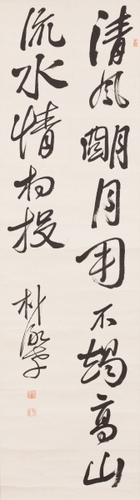 清風明月用不竭高山
流水情相投
朴泳孝